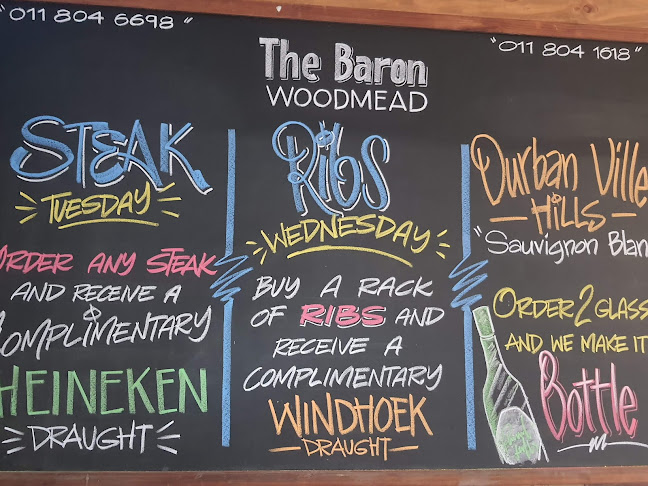 "011 804 6698"
The Baron
WOODMEAD
"011 804 1618"
STEAK
TUESDAY
ORDER ANY STEAK
AND RECEIVE A
COMPLIMENTARY
HEINEKEN
DRAUGHT
RIBS
WEDNESDAY
BUY A RACK
OF RIBS AND
RECEIVE A
COMPLIMENTARY
WINDHOEK
DRAUGHT
Durban Ville
HILLS
"Sauvignon Blan
ORDER 2 GLASS
AND WE MAKE IT
Bottle